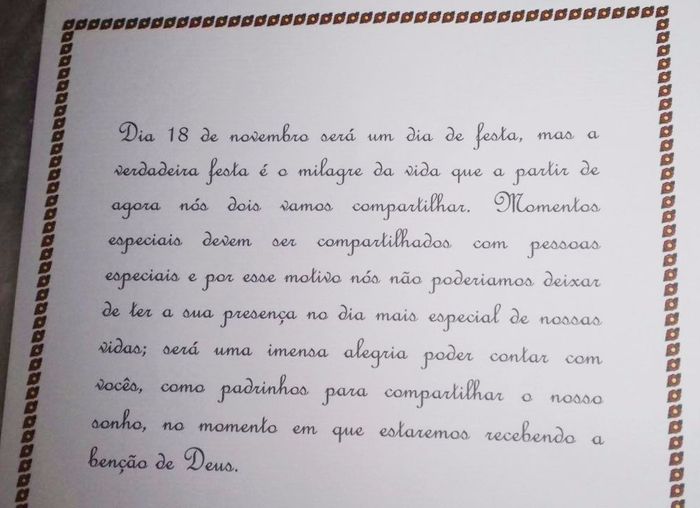 Dia 18 de novembro será um dia de festa, mas a
verdadeira festa é o milagre da vida que a partir de
agora nós dois vamos compartilhar. Momentos
especiais devem ser compartilhados com pessoas
especiais e por esse motivo nós não poderiamos deixar
de ter a sua presença no dia mais especial de nossas
vidas; será uma imensa alegria poder contar com
vocês, como padrinhos para compartilhar o nosso
sonho, no momento em que estaremos recebendo a
benção de Deus.